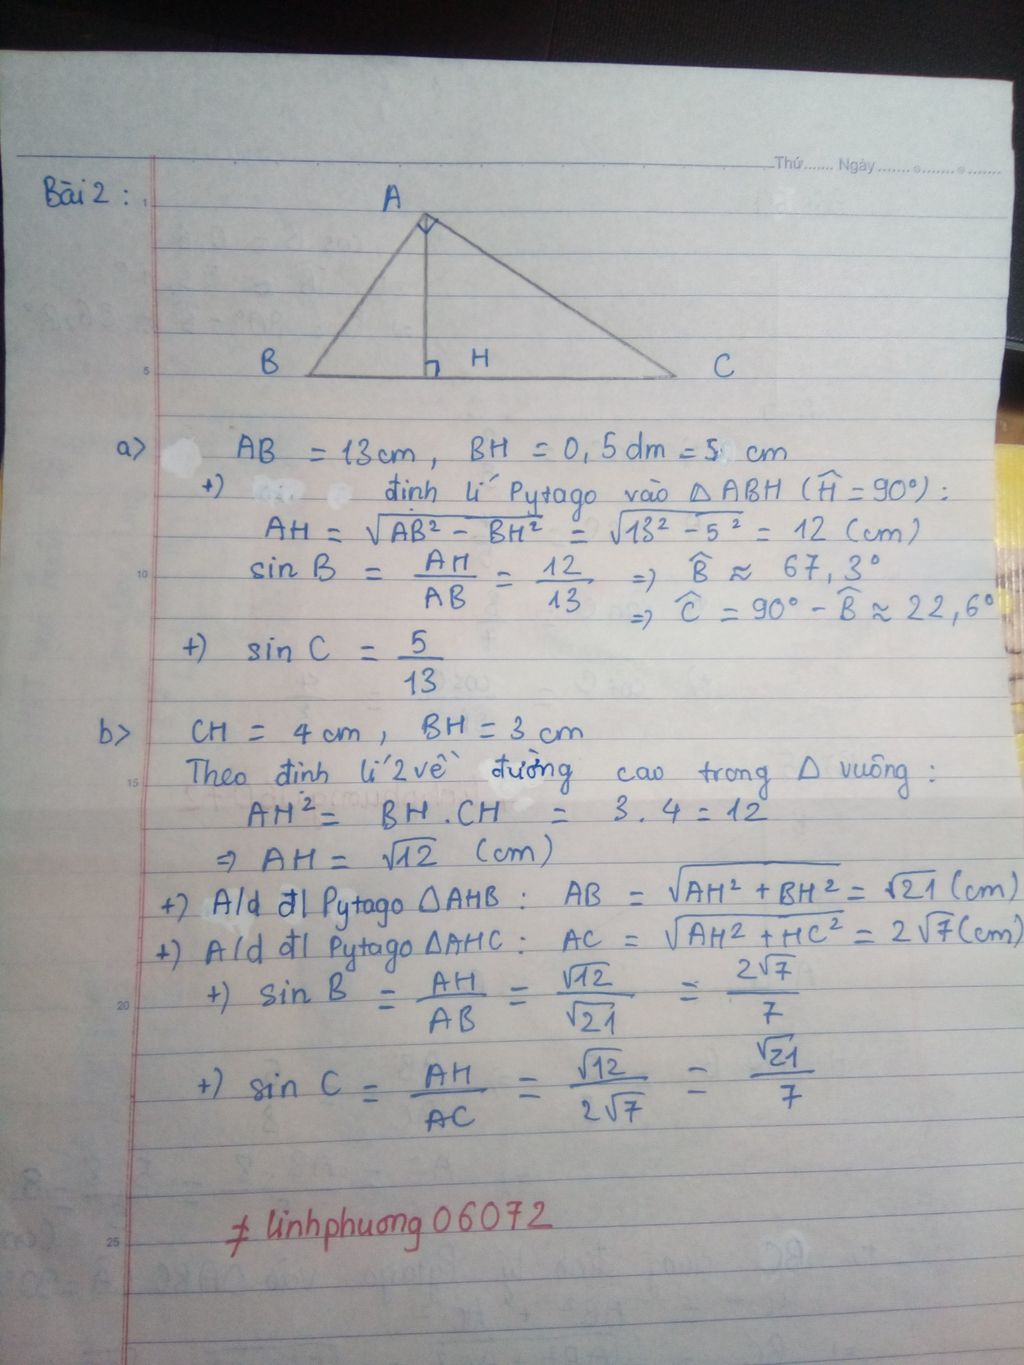 Thứ....... Ngày.......
Bài 2 :
1
A
B
H
C
5
a> AB = 13 cm, BH = 0,5 dm = 5 cm
+) định lí Pytago vào Δ ABH (Ĥ = 90°) :
AH = √(AB² - BH²) = √(13² - 5²) = 12 (cm)
10
sin B = AH/AB = 12/13 => B̂ ≈ 67,3°
=> Ĉ = 90° - B̂ ≈ 22,6°
+) sin C = 5/13
b> CH = 4 cm, BH = 3 cm
15
Theo định lí 2 về đường cao trong Δ vuông :
AH² = BH . CH = 3 . 4 = 12
=> AH = √12 (cm)
+) A/d đl Pytago ΔAHB : AB = √(AH² + BH²) = √21 (cm)
+) A/d đl Pytago ΔAHC : AC = √(AH² + HC²) = 2√7 (cm)
20
+) sin B = AH/AB = √12/√21 = 2√7/7
+) sin C = AH/AC = √12/2√7 = √21/7
≠ linhphuong06072
25